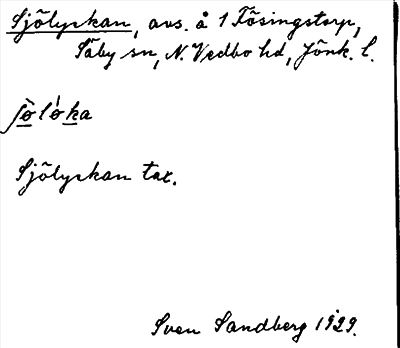 Sjölyckan, avs. å 1 Fösingstorp,
Säby sn, N. Vedbo hd, Jönk. l.
ʃö̀lo̍ka
Sjölyckan tax.
Sven Sandberg 1929.